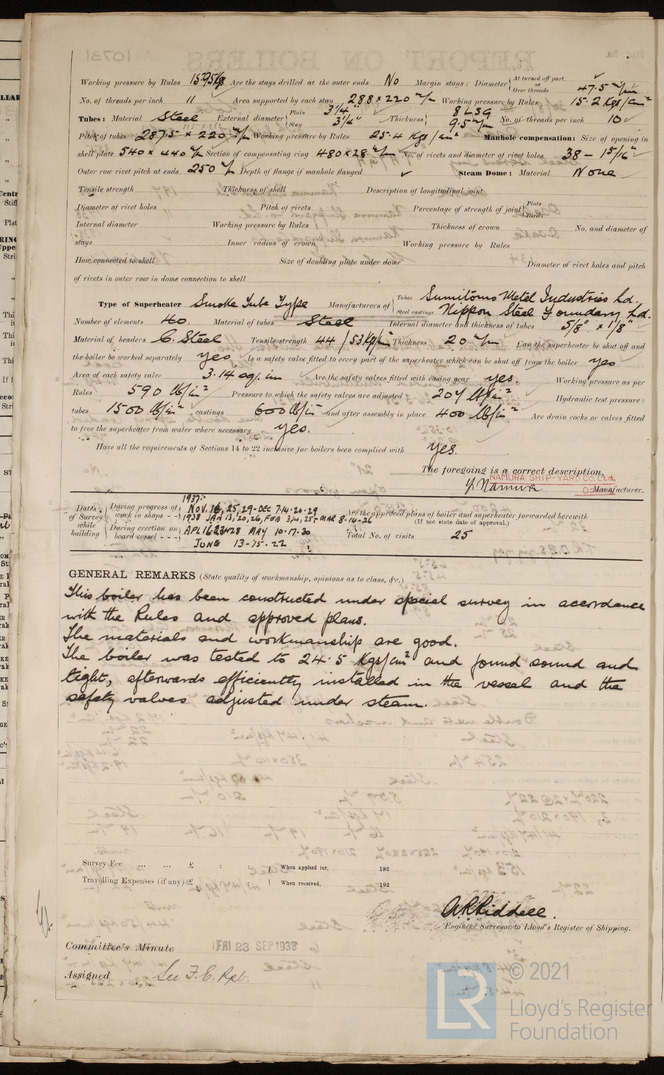 Working pressure by Rules 15.25 Kg Are the stays drilled at the outer ends No Margin stays: Diameter { At turned off part, Over threads 47.5 m/m
No. of threads per inch 11 Area supported by each stay 288 x 220 m/m Working pressure by Rules 15.2 Kg/cm²
Tubes: Material Steel External diameter { Plain 3¼" Stay 3¼" Thickness { 8 LSG 9.5 m/m No. of threads per inch 10
Pitch of tubes 287.5 x 220 m/m Working pressure by Rules 25.4 Kgs/cm² Manhole compensation: Size of opening in
shell plate 540 x 440 m/m Section of compensating ring 480 x 28 m/m No. of rivets and diameter of rivet holes 38 - 15/16"
Outer row rivet pitch at ends 250 m/m Depth of flange if manhole flanged Steam Dome: Material None
Tensile strength Thickness of shell Description of longitudinal joint
Diameter of rivet holes Pitch of rivets Percentage of strength of joint { Plate Rivets
Internal diameter Working pressure by Rules Thickness of crown No. and diameter of
stays Inner radius of crown Working pressure by Rules
How connected to shell Size of doubling plate under dome Diameter of rivet holes and pitch
of rivets in outer row in dome connection to shell
Type of Superheater Smoke Tube Type Manufacturers of { Tubes Sumitomo Metal Industries Ld.
Steel castings Nippon Steel Foundary Ld.
Number of elements 40 Material of tubes Steel Internal diameter and thickness of tubes 5/8" x 1/8"
Material of headers C. Steel Tensile strength 44/53 Kg/m Thickness 20 m/m Can the superheater be shut off and
the boiler be worked separately yes Is a safety valve fitted to every part of the superheater which can be shut off from the boiler yes
Area of each safety valve 3.14 sq. in Are the safety valves fitted with easing gear yes. Working pressure as per
Rules 590 lb/in² Pressure to which the safety valves are adjusted 207 lb/in² Hydraulic test pressure:
tubes 1500 lb/in² castings 600 lb/in² and after assembly in place 400 lb/in² Are drain cocks or valves fitted
to free the superheater from water where necessary yes.
Have all the requirements of Sections 14 to 22 inclusive for boilers been complied with yes.
The foregoing is a correct description,
NAMURA SHIP-YARD CO., Ltd.
Y. Namura Manufacturer.
Dates of Survey while building
During progress of work in shops - - 1937: NOV. 16, 25, 29 - DEC 7-14-20-29
1938 JAN 13, 20, 26, FEB 3, 10, 25 - MAR 8-14-26
During erection on board vessel - - - APL 16 23 & 28 MAY 10-17-30
JUNE 13-15-22
Are the approved plans of boiler and superheater forwarded herewith
(If not state date of approval.)
Total No. of visits 25
GENERAL REMARKS (State quality of workmanship, opinions as to class, &c.)
This boiler has been constructed under special survey in accordance
with the Rules and approved plans.
The materials and workmanship are good.
The boiler was tested to 24.5 Kgs/cm² and found sound and
tight, afterwards efficiently installed in the vessel and the
safety valves adjusted under steam.
Survey Fee ... ... £ : : When applied for, 192
Travelling Expenses (if any) £ : : When received, 192
A R Riddell.
Engineer Surveyor to Lloyd's Register of Shipping.
Committee's Minute FRI 23 SEP 1938
Assigned See F. E. Rpt.
© 2021
Lloyd's Register
Foundation
LR